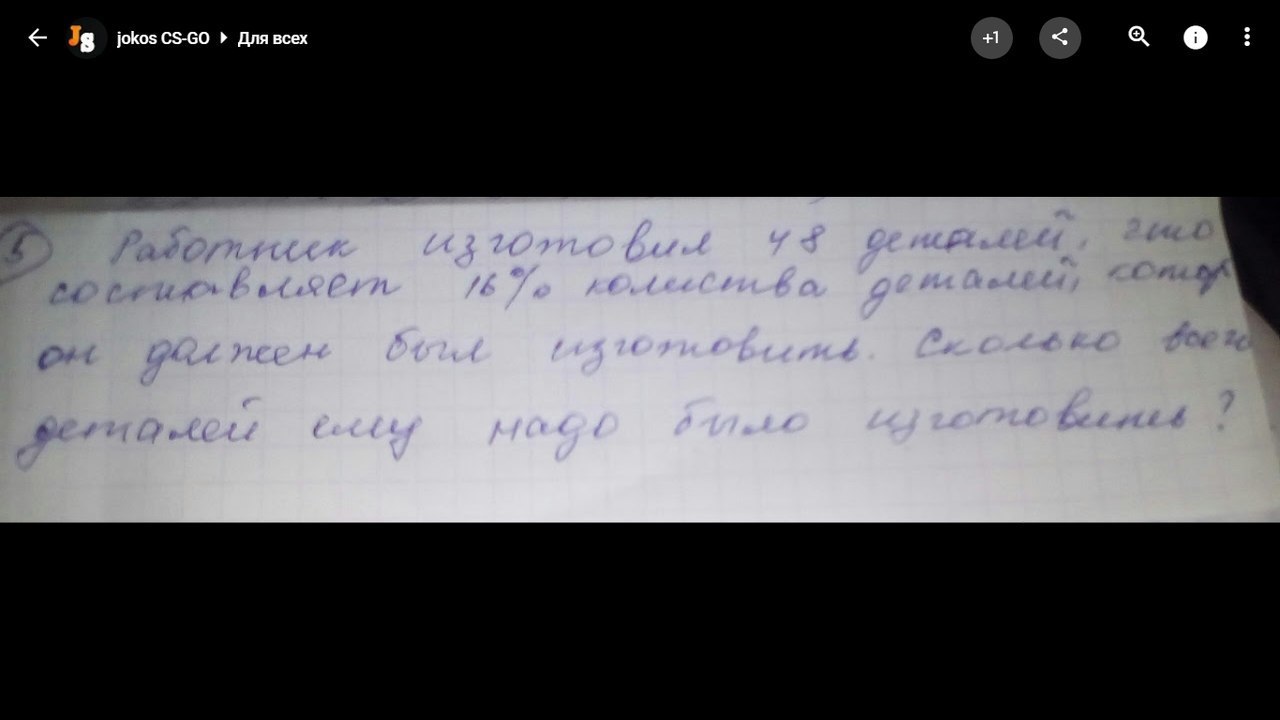 jokos CS-GO ▸ Для всех
+1
5 Работник изготовил 48 деталей, это
составляет 16% колиства деталей, котор
он должен был изготовить. Сколько всего
деталей ему надо было изготовить?